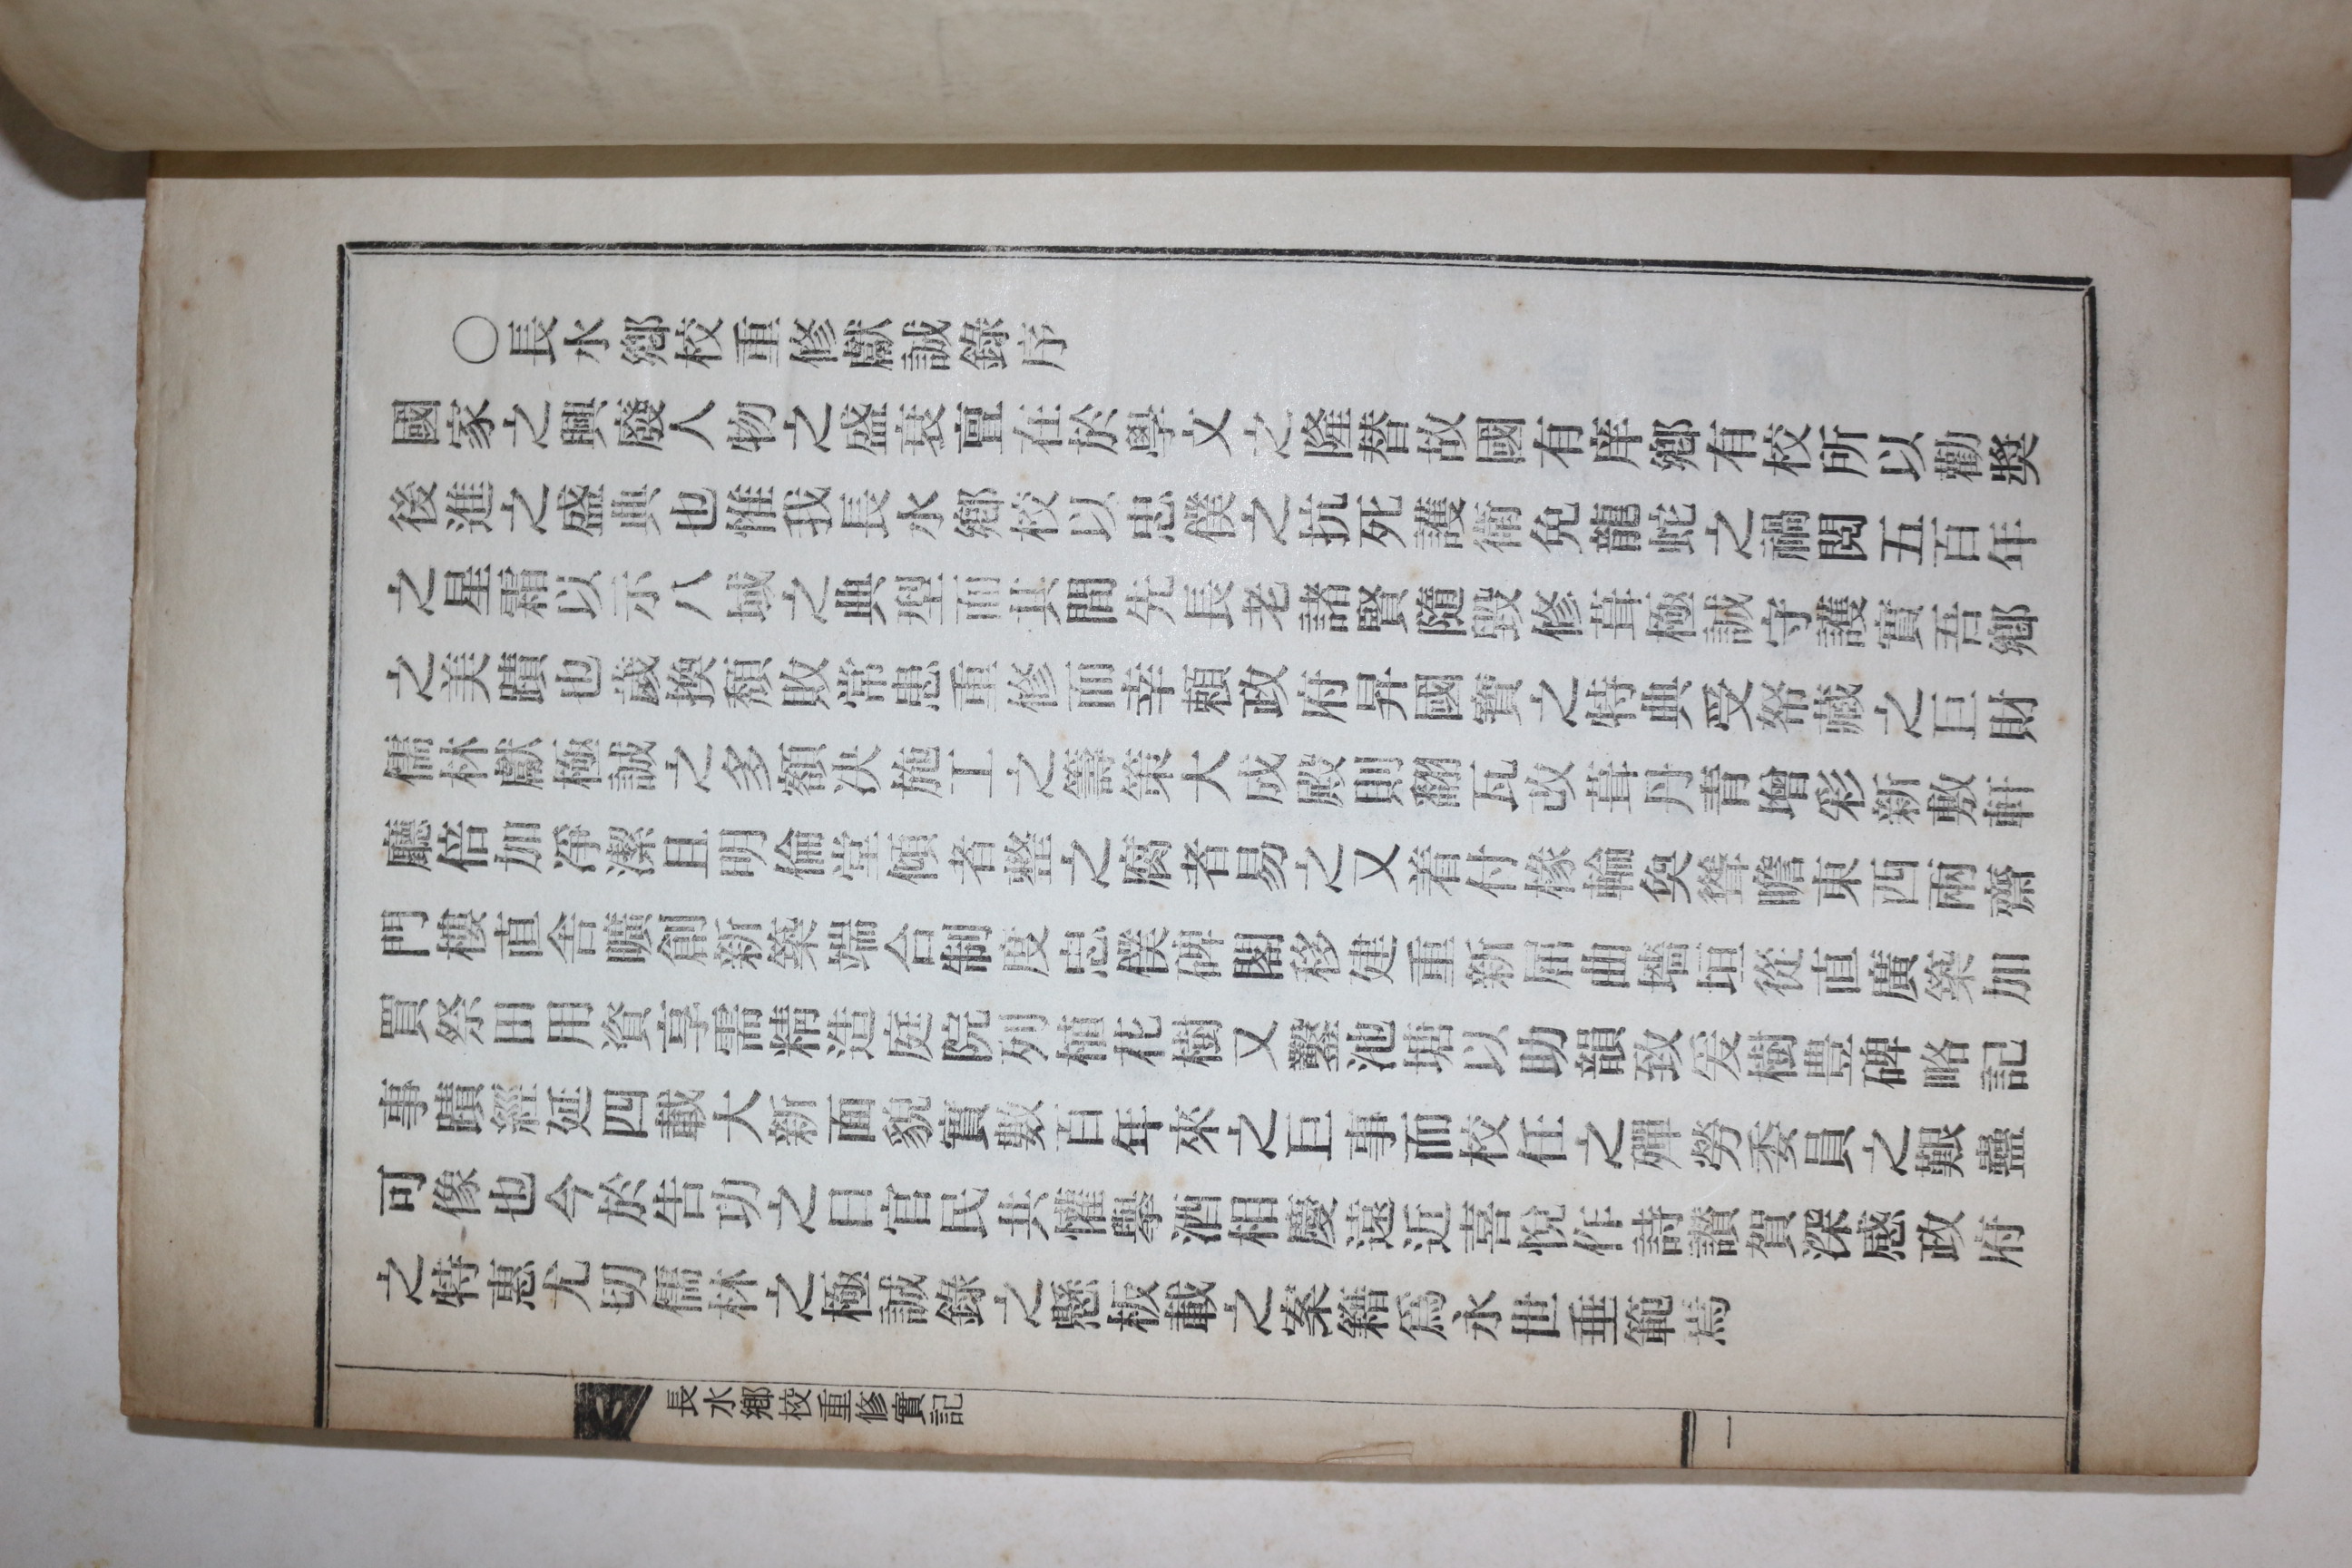 ○長水鄕校重修獻誠錄序
國家之興廢人物之盛衰亶在於學文之隆替故國有庠鄕有校所以勸奬
後進之盛典也惟我長水鄕校以忠僕之抗死護衛免龍蛇之禍閲五百年
之星霜以示八域之典型而其間先長老諸賢隨毀修葺極誠守護實吾鄕
之美蹟也歲換頹敗常患重修而幸賴政府昇國寶之特典受帑藏之巨財
儒林獻極誠之多額决施工之籌策大成殿則翻瓦改葺丹青增彩新敷軒
廳倍加凈潔且明倫堂傾者整之腐者易之又着付椽輪奐聳瞻東西兩齋
門樓直舍曠創新築端合制度忠僕碑閣移建重新屈曲墻垣從直廣築加
買祭田用資享需精造庭院列植花樹又鑿池塘以助韻致爰樹豊碑略記
事蹟經延四載大新面貌實數百年來之巨事而校任之殫勞委員之艱蠱
可像也今於告功之日官民共懽擧酒相慶遠近喜悅作詩讃賀深感政府
之特惠尤切儒林之極誠錄之懸板載之案籍爲永世垂範焉
長水鄕校重修實記
一